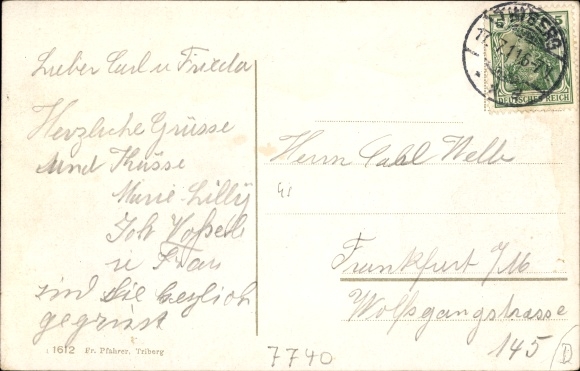 Lieber Carl u Frieda
Herzliche Grüsse
und Küsse
Marie Lilly
Joh Vosseler
u Frau
sind Sie herzlich
gegrüst
1612 Fr. Pfahrer, Triberg
TRIBERG
17.7.11.6-7
5
DEUTSCHES REICH
Herrn Carl Welle
Frankfurt /M.
Wolfsgangstrasse
145
D
7740